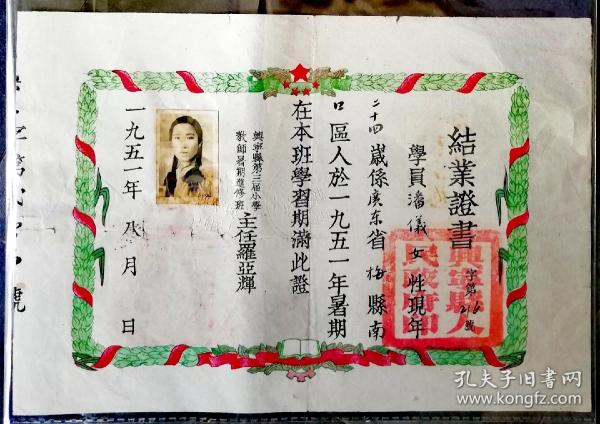 結業證書
字第216號
學員潘儀女性現年
二十四歲係廣东省梅縣南
口區人於一九五一年暑期
在本班學習期滿此證
興寧縣第三屆小學
教師暑期進修班
主任羅亞輝
一九五一年八月 日
興寧縣人
民政府印
號
孔夫子旧书网
www.kongfz.com